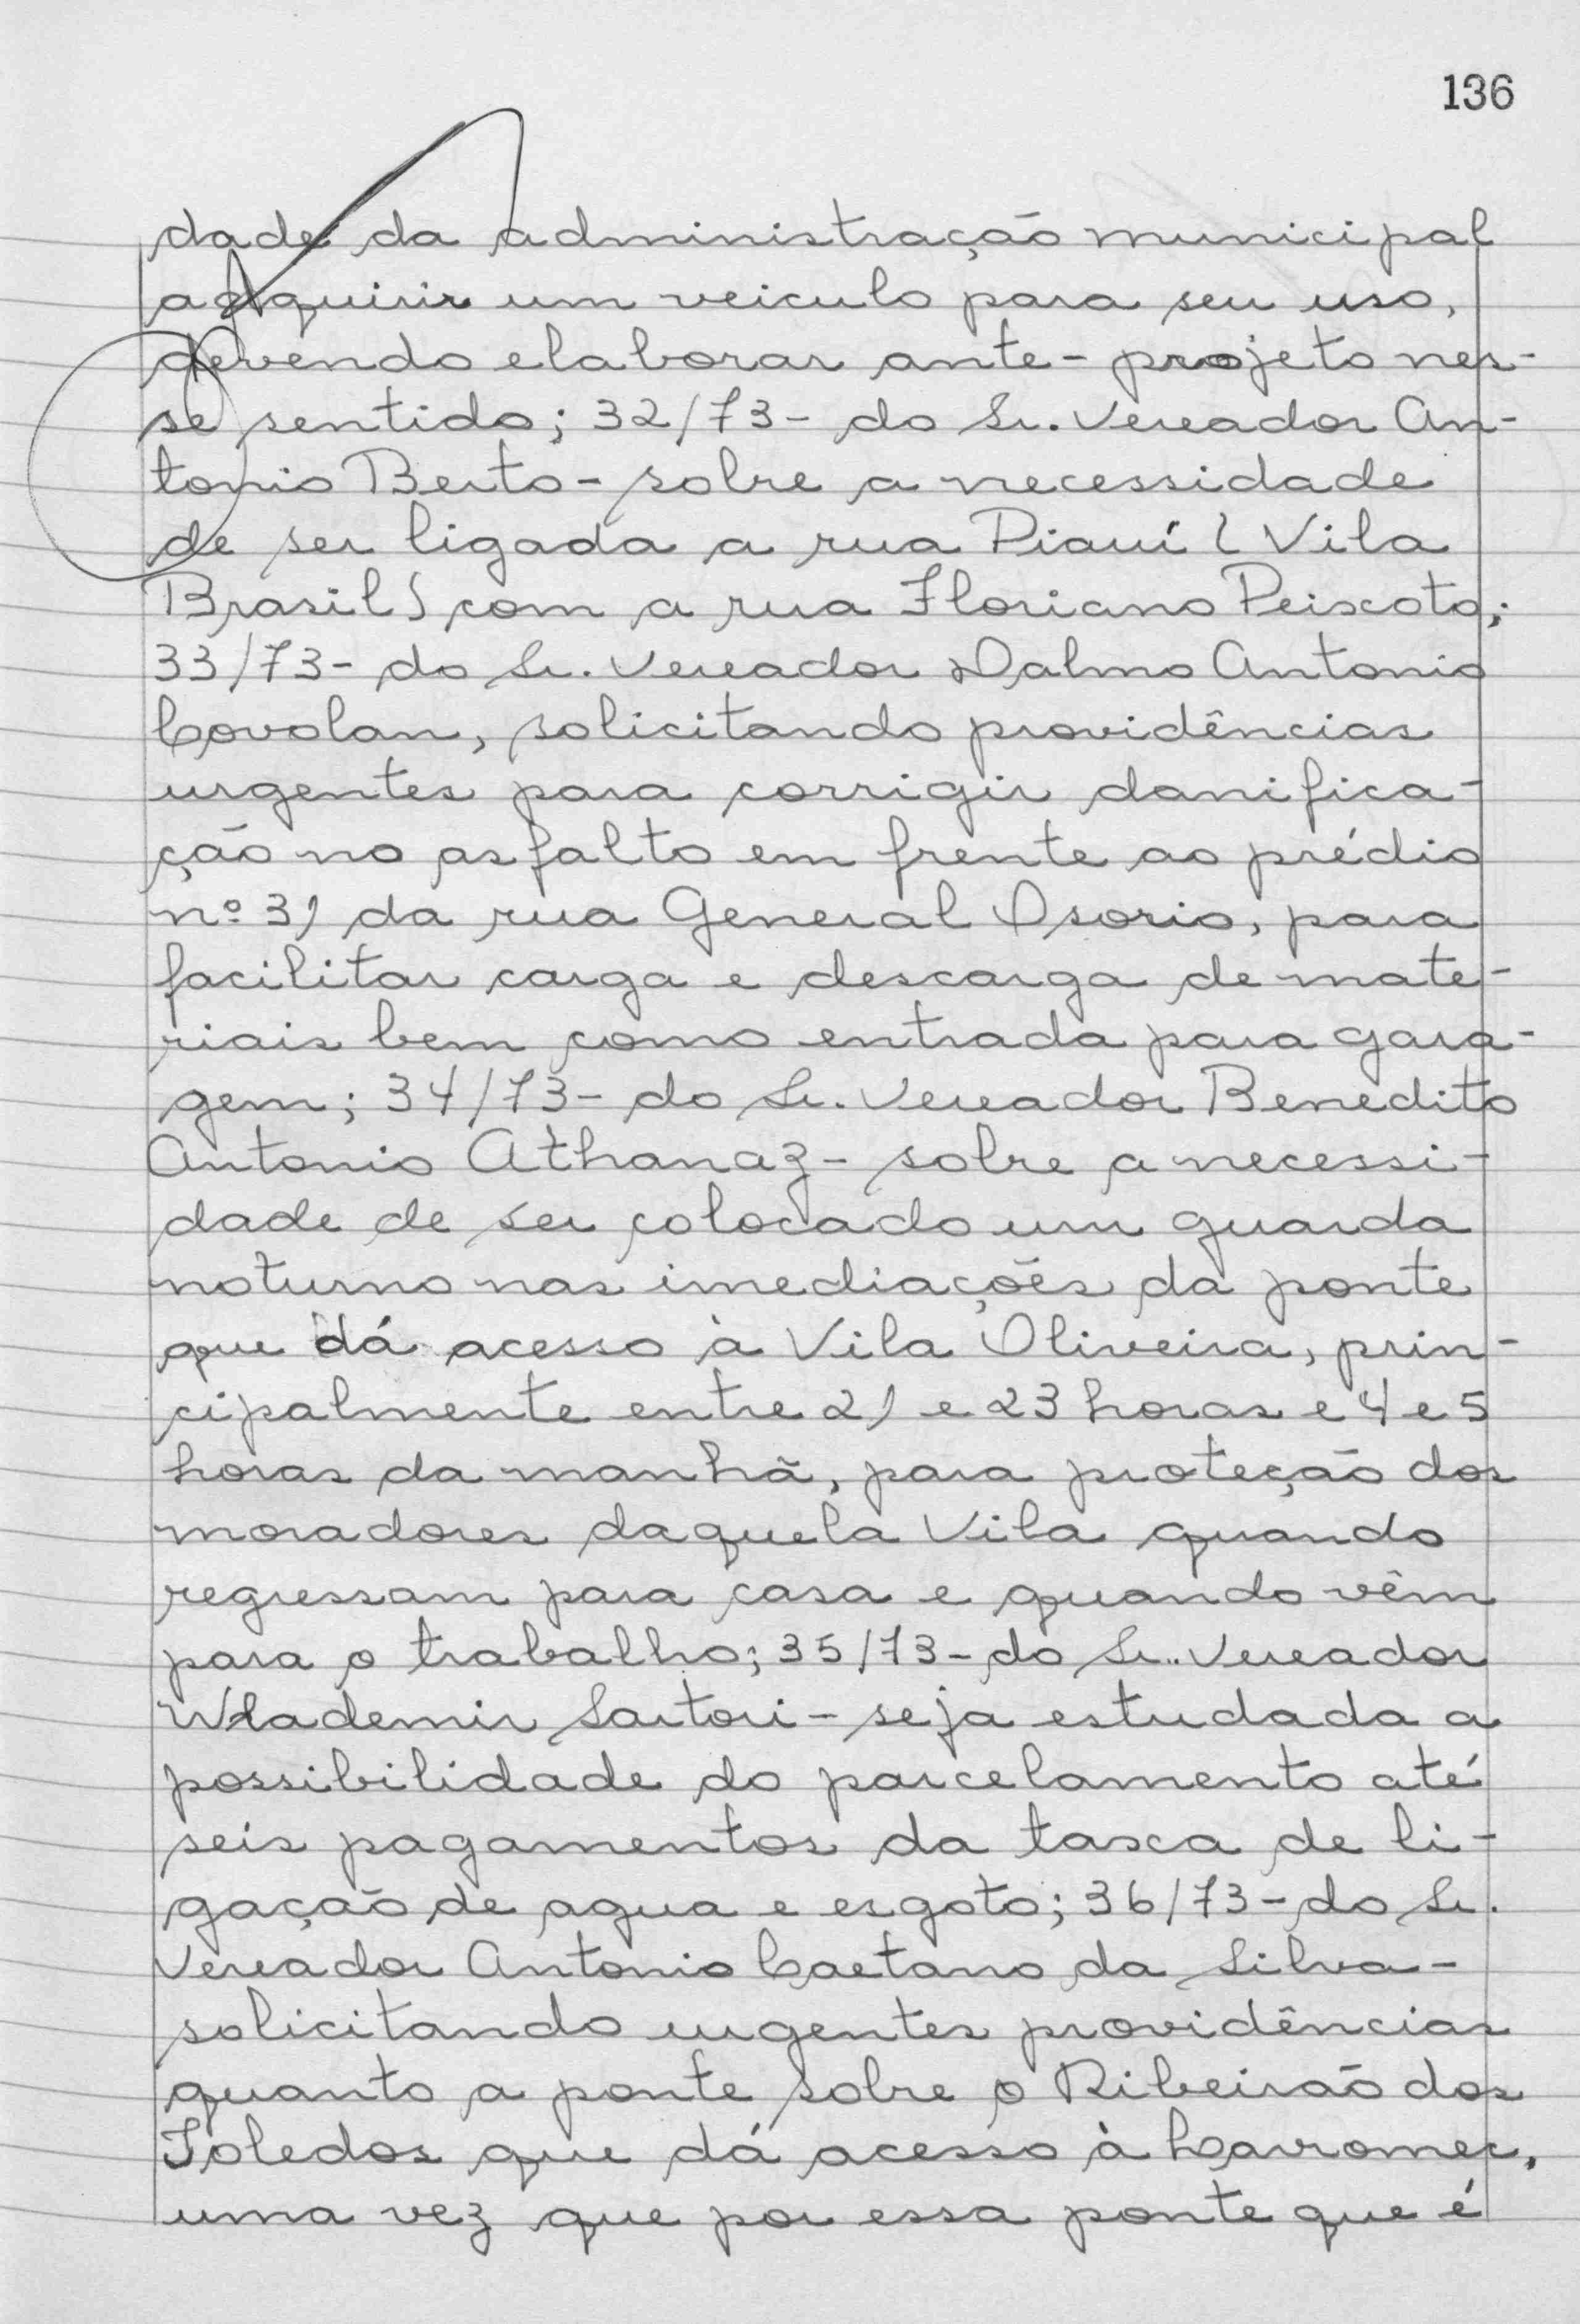 136
dade da administração municipal
adquirir um veiculo para seu uso,
devendo elaborar ante-projeto nes-
se sentido; 32/73- do Sr. Vereador An-
tonio Berto- sobre a necessidade
de ser ligada a rua Piauí (Vila
Brasil) com a rua Floriano Peixoto;
33/73- do Sr. Vereador Dalmo Antonio
Covolan, solicitando providências
urgentes para corrigir danifica-
ção no asfalto em frente ao prédio
nº 31 da rua General Osorio, para
facilitar carga e descarga de mate-
riais bem como entrada para gara-
gem; 34/73- do Sr. Vereador Benedito
Antonio Athanaz- sobre a necessi-
dade de ser colocado um guarda
noturno nas imediações da ponte
que dá acesso à Vila Oliveira, prin-
cipalmente entre 21 e 23 horas e 4 e 5
horas da manhã, para proteção dos
moradores daquela Vila quando
regressam para casa e quando vêm
para o trabalho; 35/73- do Sr. Vereador
Wlademir Sartori- seja estudada a
possibilidade do parcelamento até
seis pagamentos da taxa de li-
gação de agua e esgoto; 36/73- do Sr.
Vereador Antonio Caetano da Silva-
solicitando urgentes providências
quanto a ponte sobre o Ribeirão dos
Toledos que dá acesso à
uma vez que por essa ponte que é